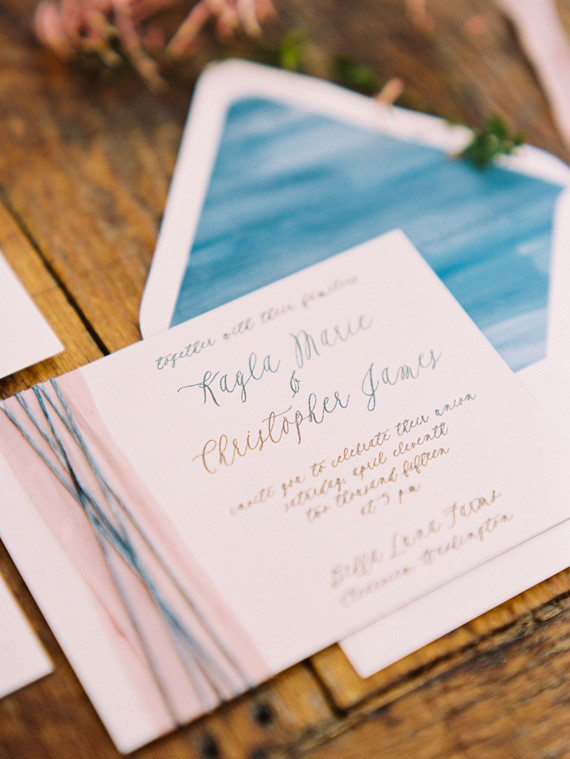 together with their families
Kayla Marie
&
Christopher James
invite you to celebrate their union
saturday, april eleventh
two thousand fifteen
at 5 pm
Bella Luna Farms
Washington